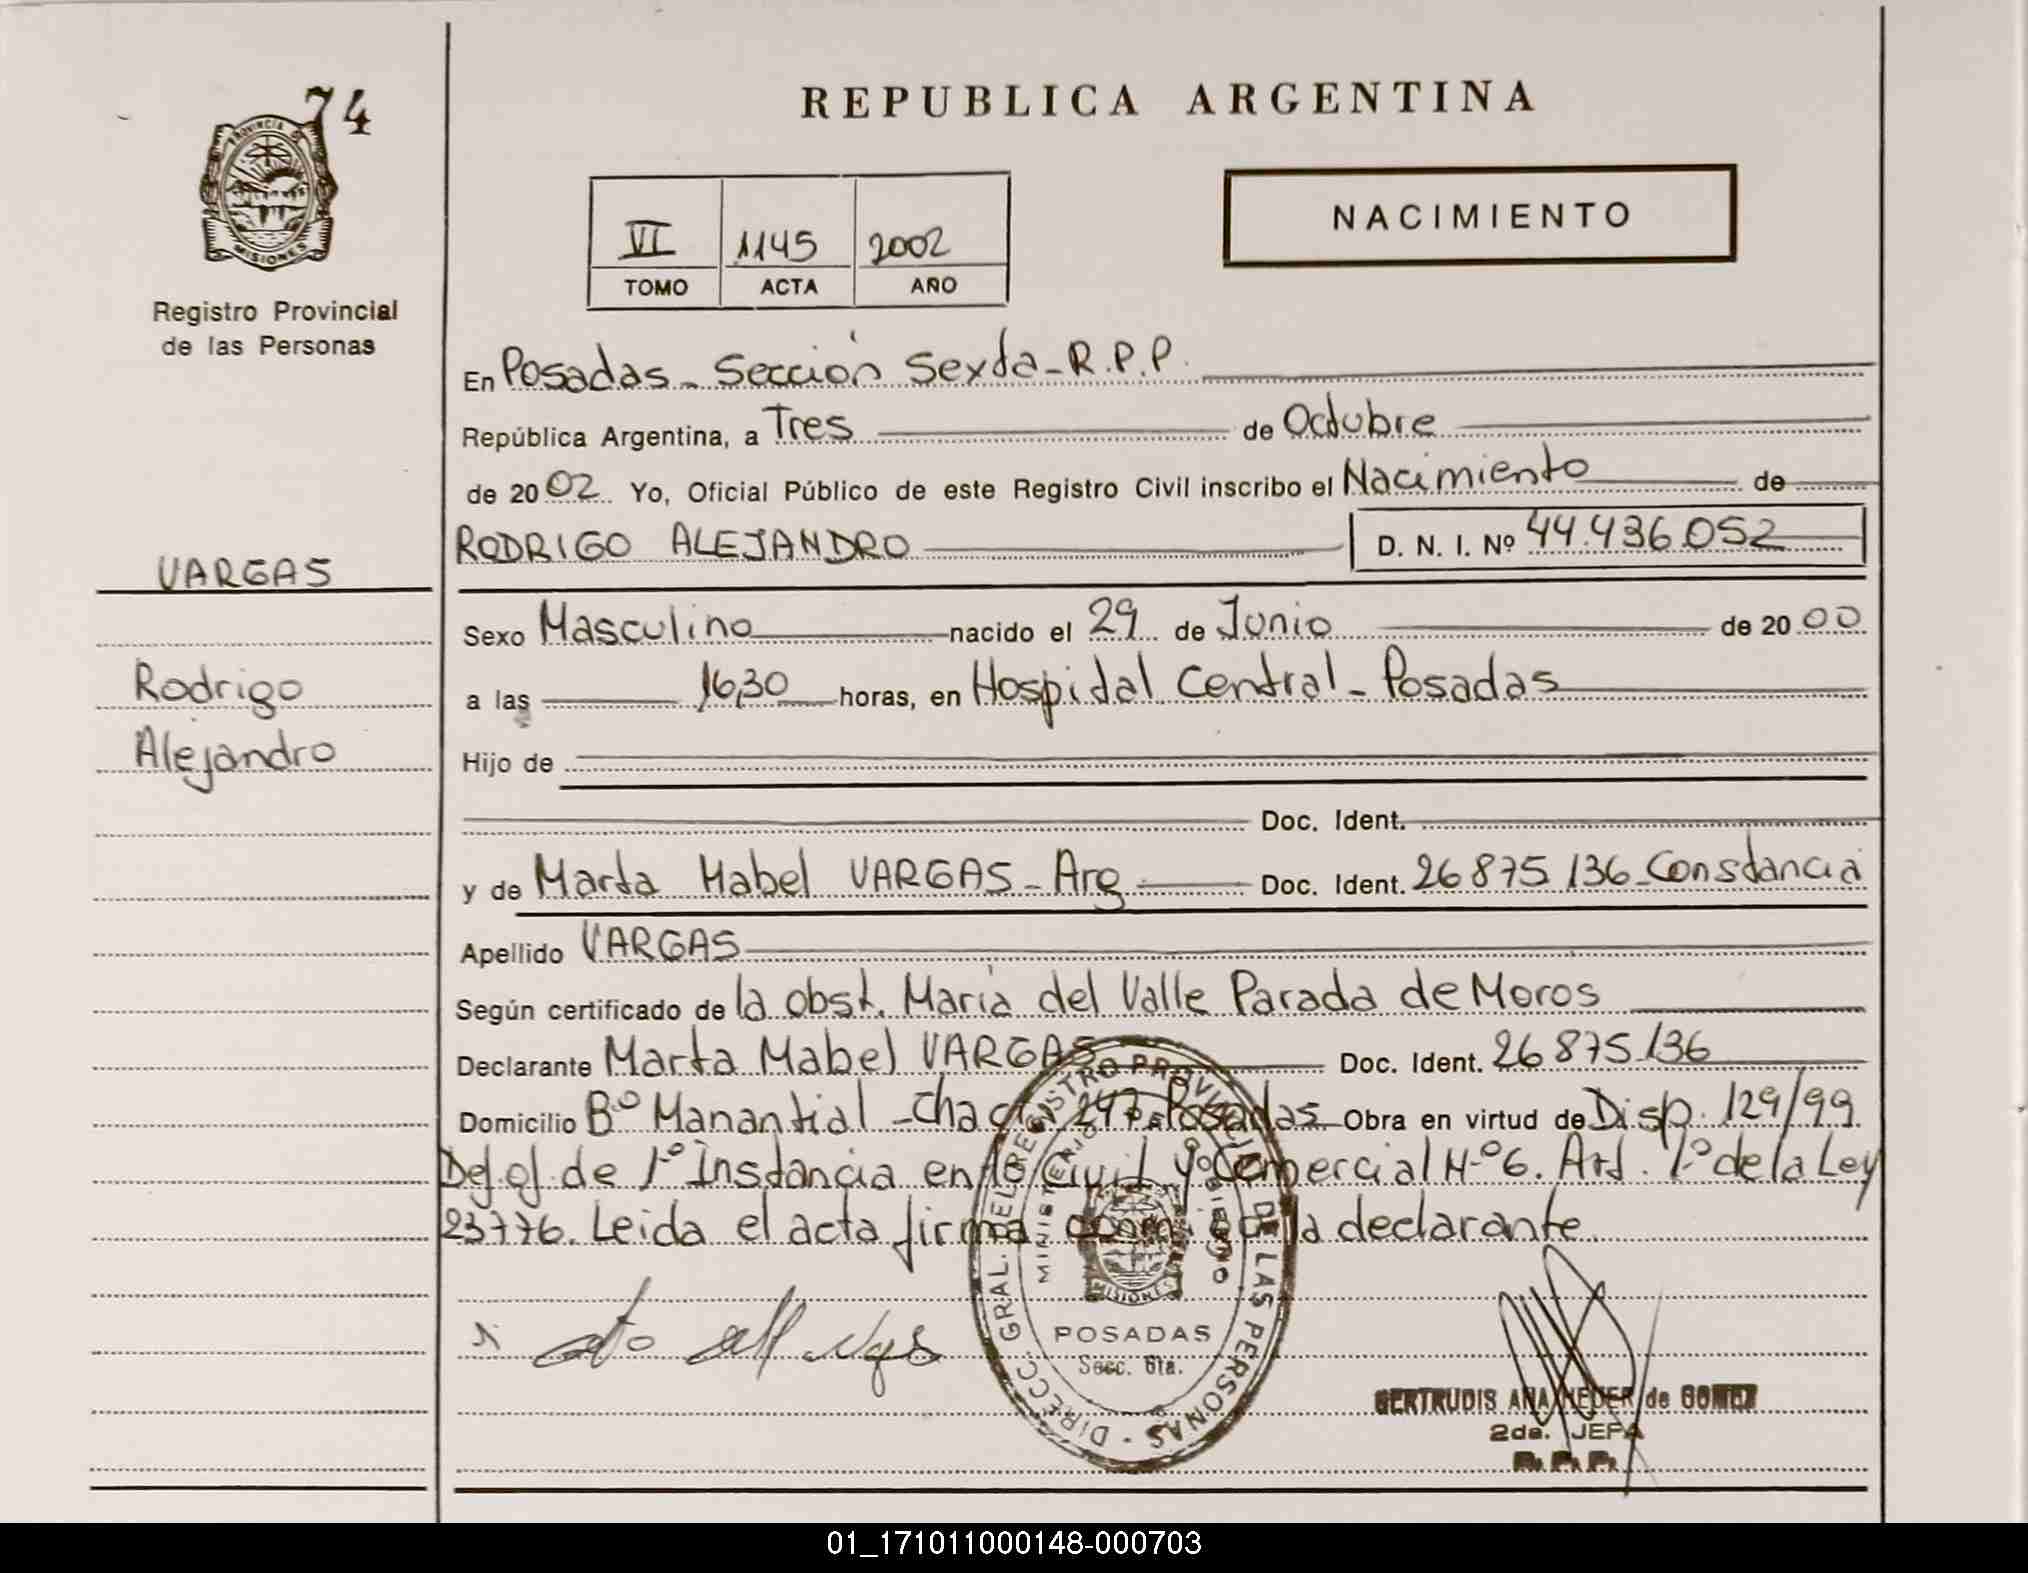 74
REPUBLICA ARGENTINA
PROVINCIA DE
MISIONES
NACIMIENTO
VI 1145 2002
TOMO ACTA AÑO
Registro Provincial
de las Personas
En Posadas - Sección Sexta - R.P.P.
República Argentina, a Tres de Octubre
de 2002 Yo, Oficial Público de este Registro Civil inscribo el Nacimiento de
RODRIGO ALEJANDRO D. N. I. Nº 44.436.052
VARGAS
Sexo Masculino nacido el 29 de Junio de 2000
Rodrigo
a las 16,30 horas, en Hospital Central - Posadas
Alejandro
Hijo de
Doc. Ident.
y de Marta Mabel VARGAS - Arg Doc. Ident. 26.875.136 - Constancia
Apellido VARGAS
Según certificado de la obst. María del Valle Parada de Moros
Declarante Marta Mabel VARGAS Doc. Ident. 26.875.136
Domicilio Bº Manantial - Chacra 247 Posadas Obra en virtud de Disp. 129/99
Def. of. de 1º Instancia en lo Civil y Comercial Nº 6. Art. 1º de la Ley
23776. Leida el acta firma la declarante.
DIRECC. GRAL. DEL REGISTRO PROVINCIAL DE LAS PERSONAS
MINISTERIO DE GOBIERNO
MISIONES
POSADAS
Secc. 6ta.
GERTRUDIS ANA de GOMEZ
2da. JEFA
R. P. P.
01_171011000148-000703